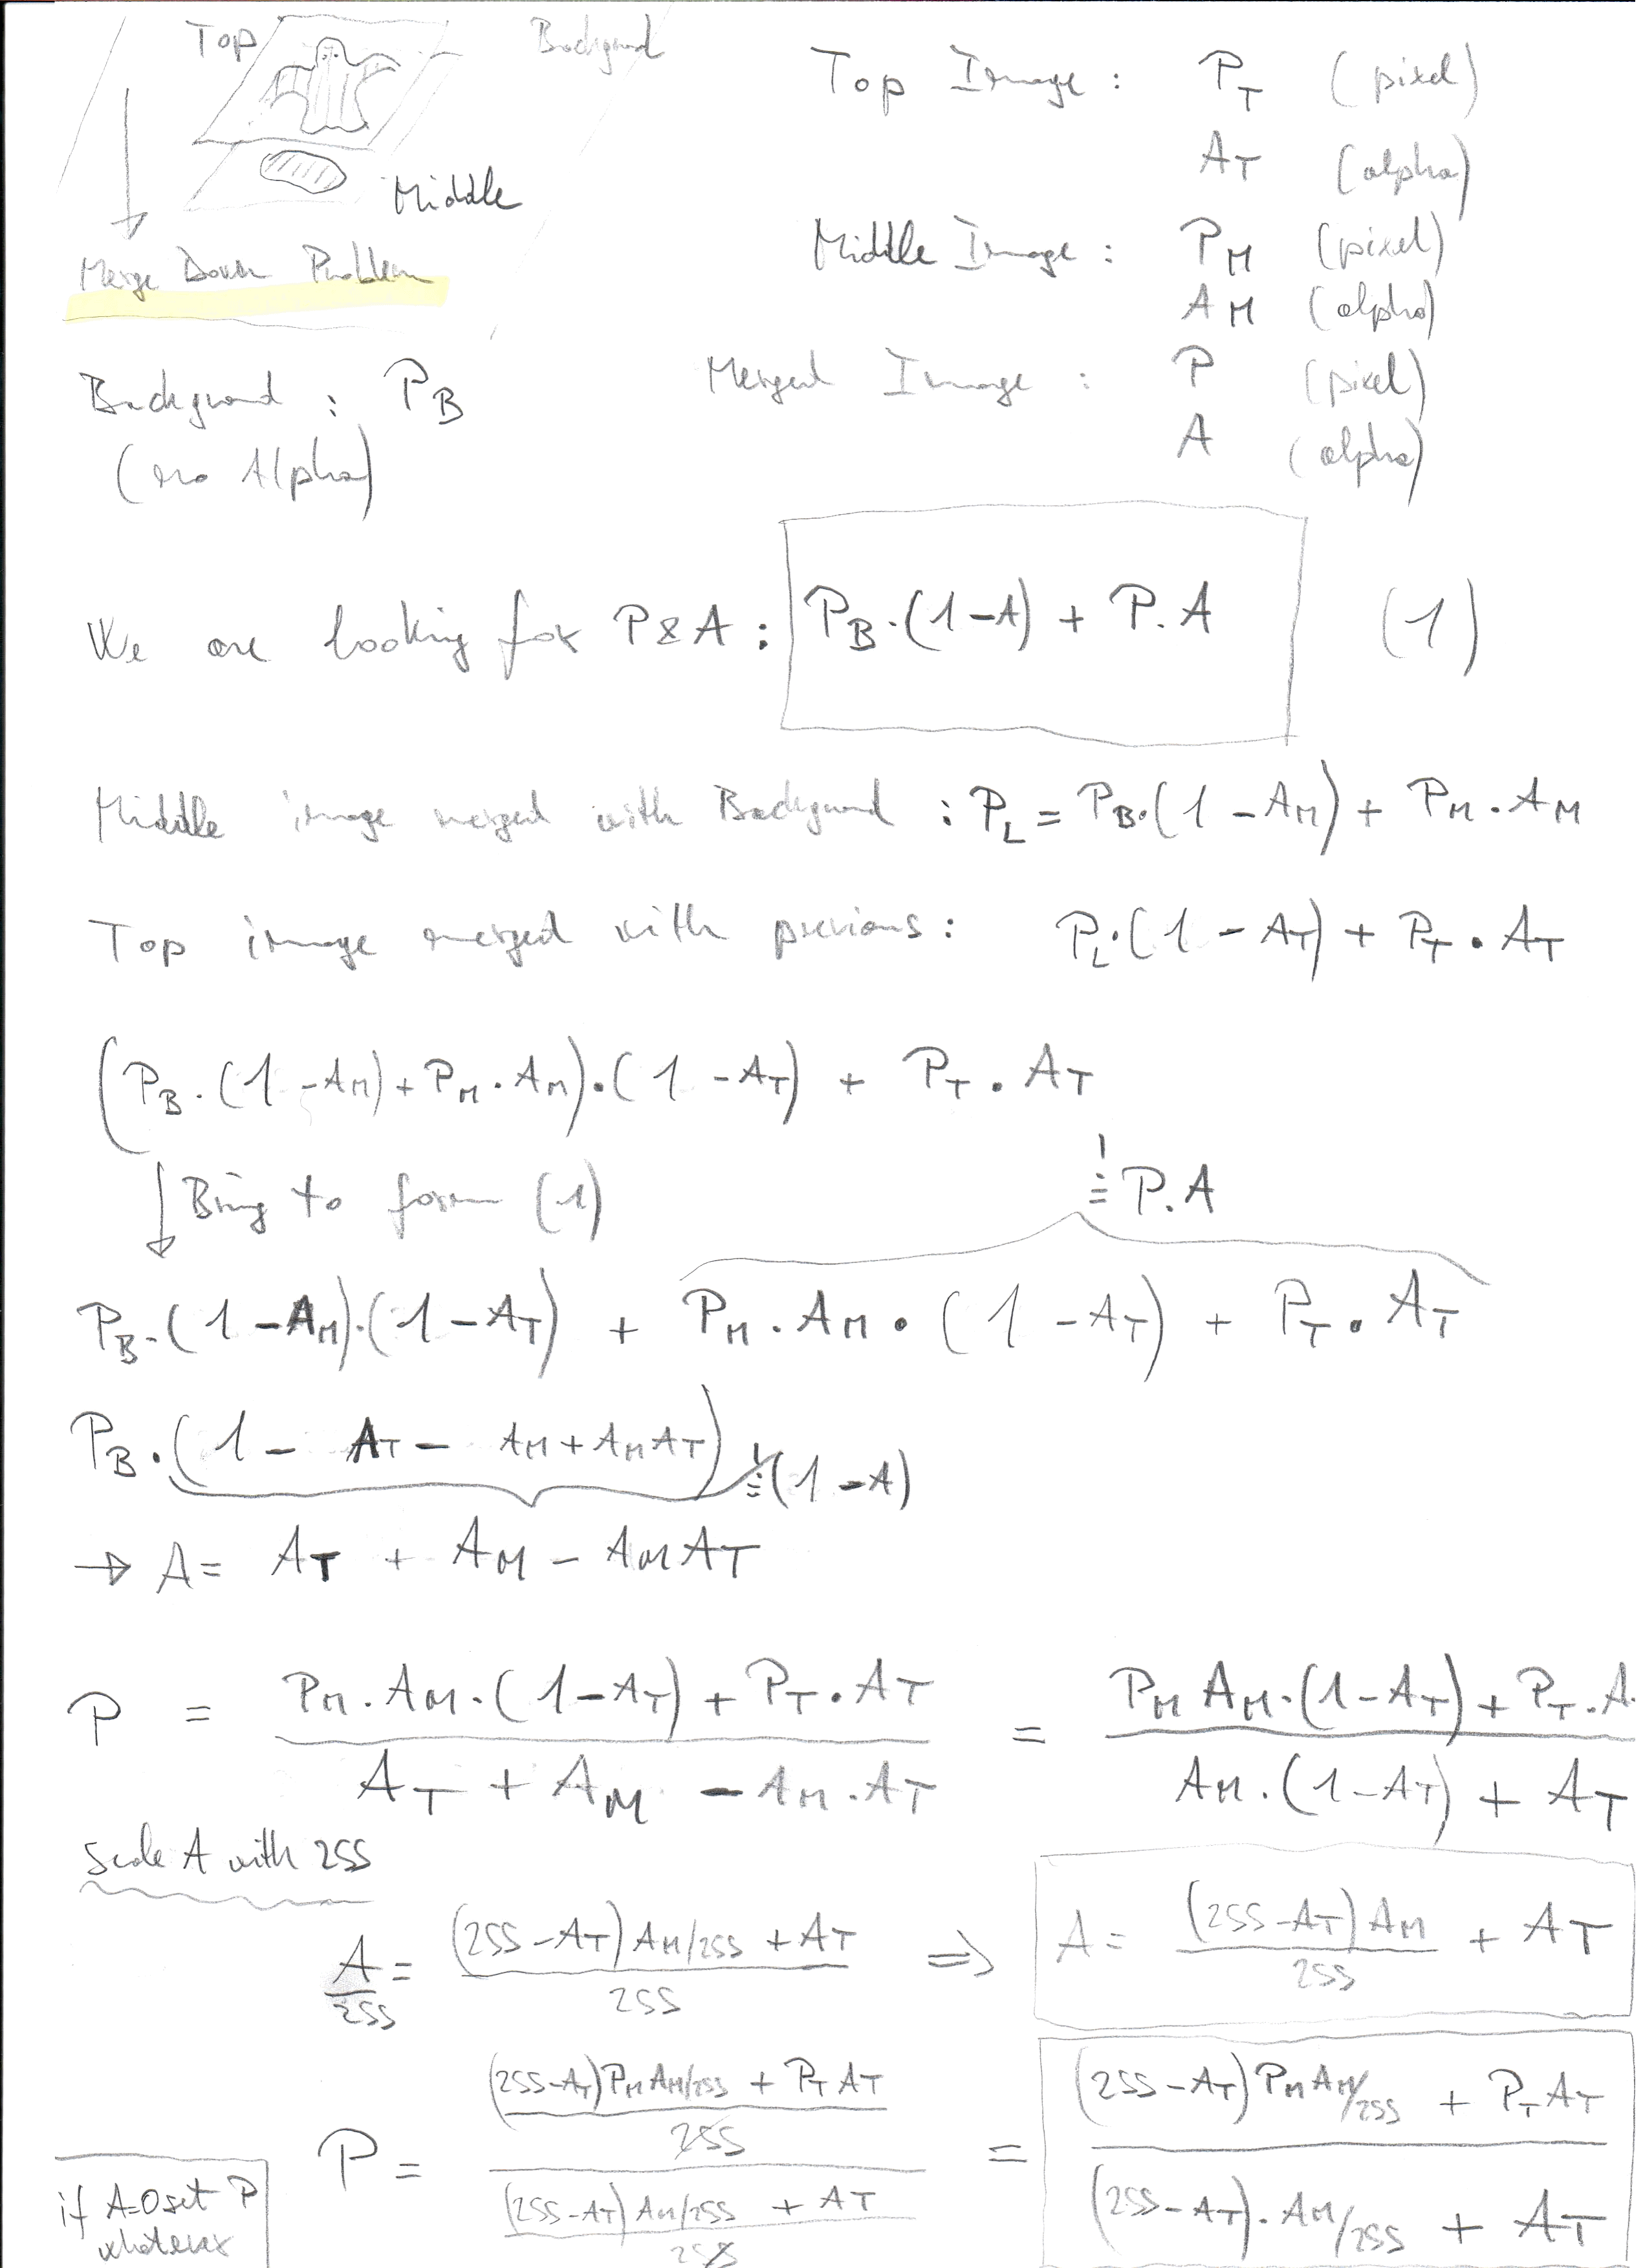 Top Background
Middle
Merge Down Problem
Top Image : P_T (pixel)
A_T (alpha)
Middle Image : P_M (pixel)
A_M (alpha)
Merged Image : P (pixel)
A (alpha)
Background : P_B
(no Alpha)
We are looking for P & A : P_B · (1 - A) + P · A (1)
Middle image merged with Background : P_L = P_B · (1 - A_M) + P_M · A_M
Top image merged with previous : P_L · (1 - A_T) + P_T · A_T
(P_B · (1 - A_M) + P_M · A_M) · (1 - A_T) + P_T · A_T
↓ Bring to form (1)
! = P · A
P_B · (1 - A_M) · (1 - A_T) + P_M · A_M · (1 - A_T) + P_T · A_T
P_B · (1 - A_T - A_M + A_M A_T) ! = (1 - A)
→ A = A_T + A_M - A_M A_T
P = (P_M · A_M · (1 - A_T) + P_T · A_T) / (A_T + A_M - A_M · A_T) = (P_M A_M · (1 - A_T) + P_T · A) / (A_M · (1 - A_T) + A_T)
Scale A with 255
A/255 = ((255 - A_T) A_M/255 + A_T) / 255 ⇒ A = (255 - A_T) A_M / 255 + A_T
P = (((255 - A_T) P_M A_M/255 + P_T A_T) / 255) / (((255 - A_T) A_M/255 + A_T) / 255) = ((255 - A_T) P_M A_M/255 + P_T A_T) / ((255 - A_T) · A_M/255 + A_T)
if A=0 set P
whatever